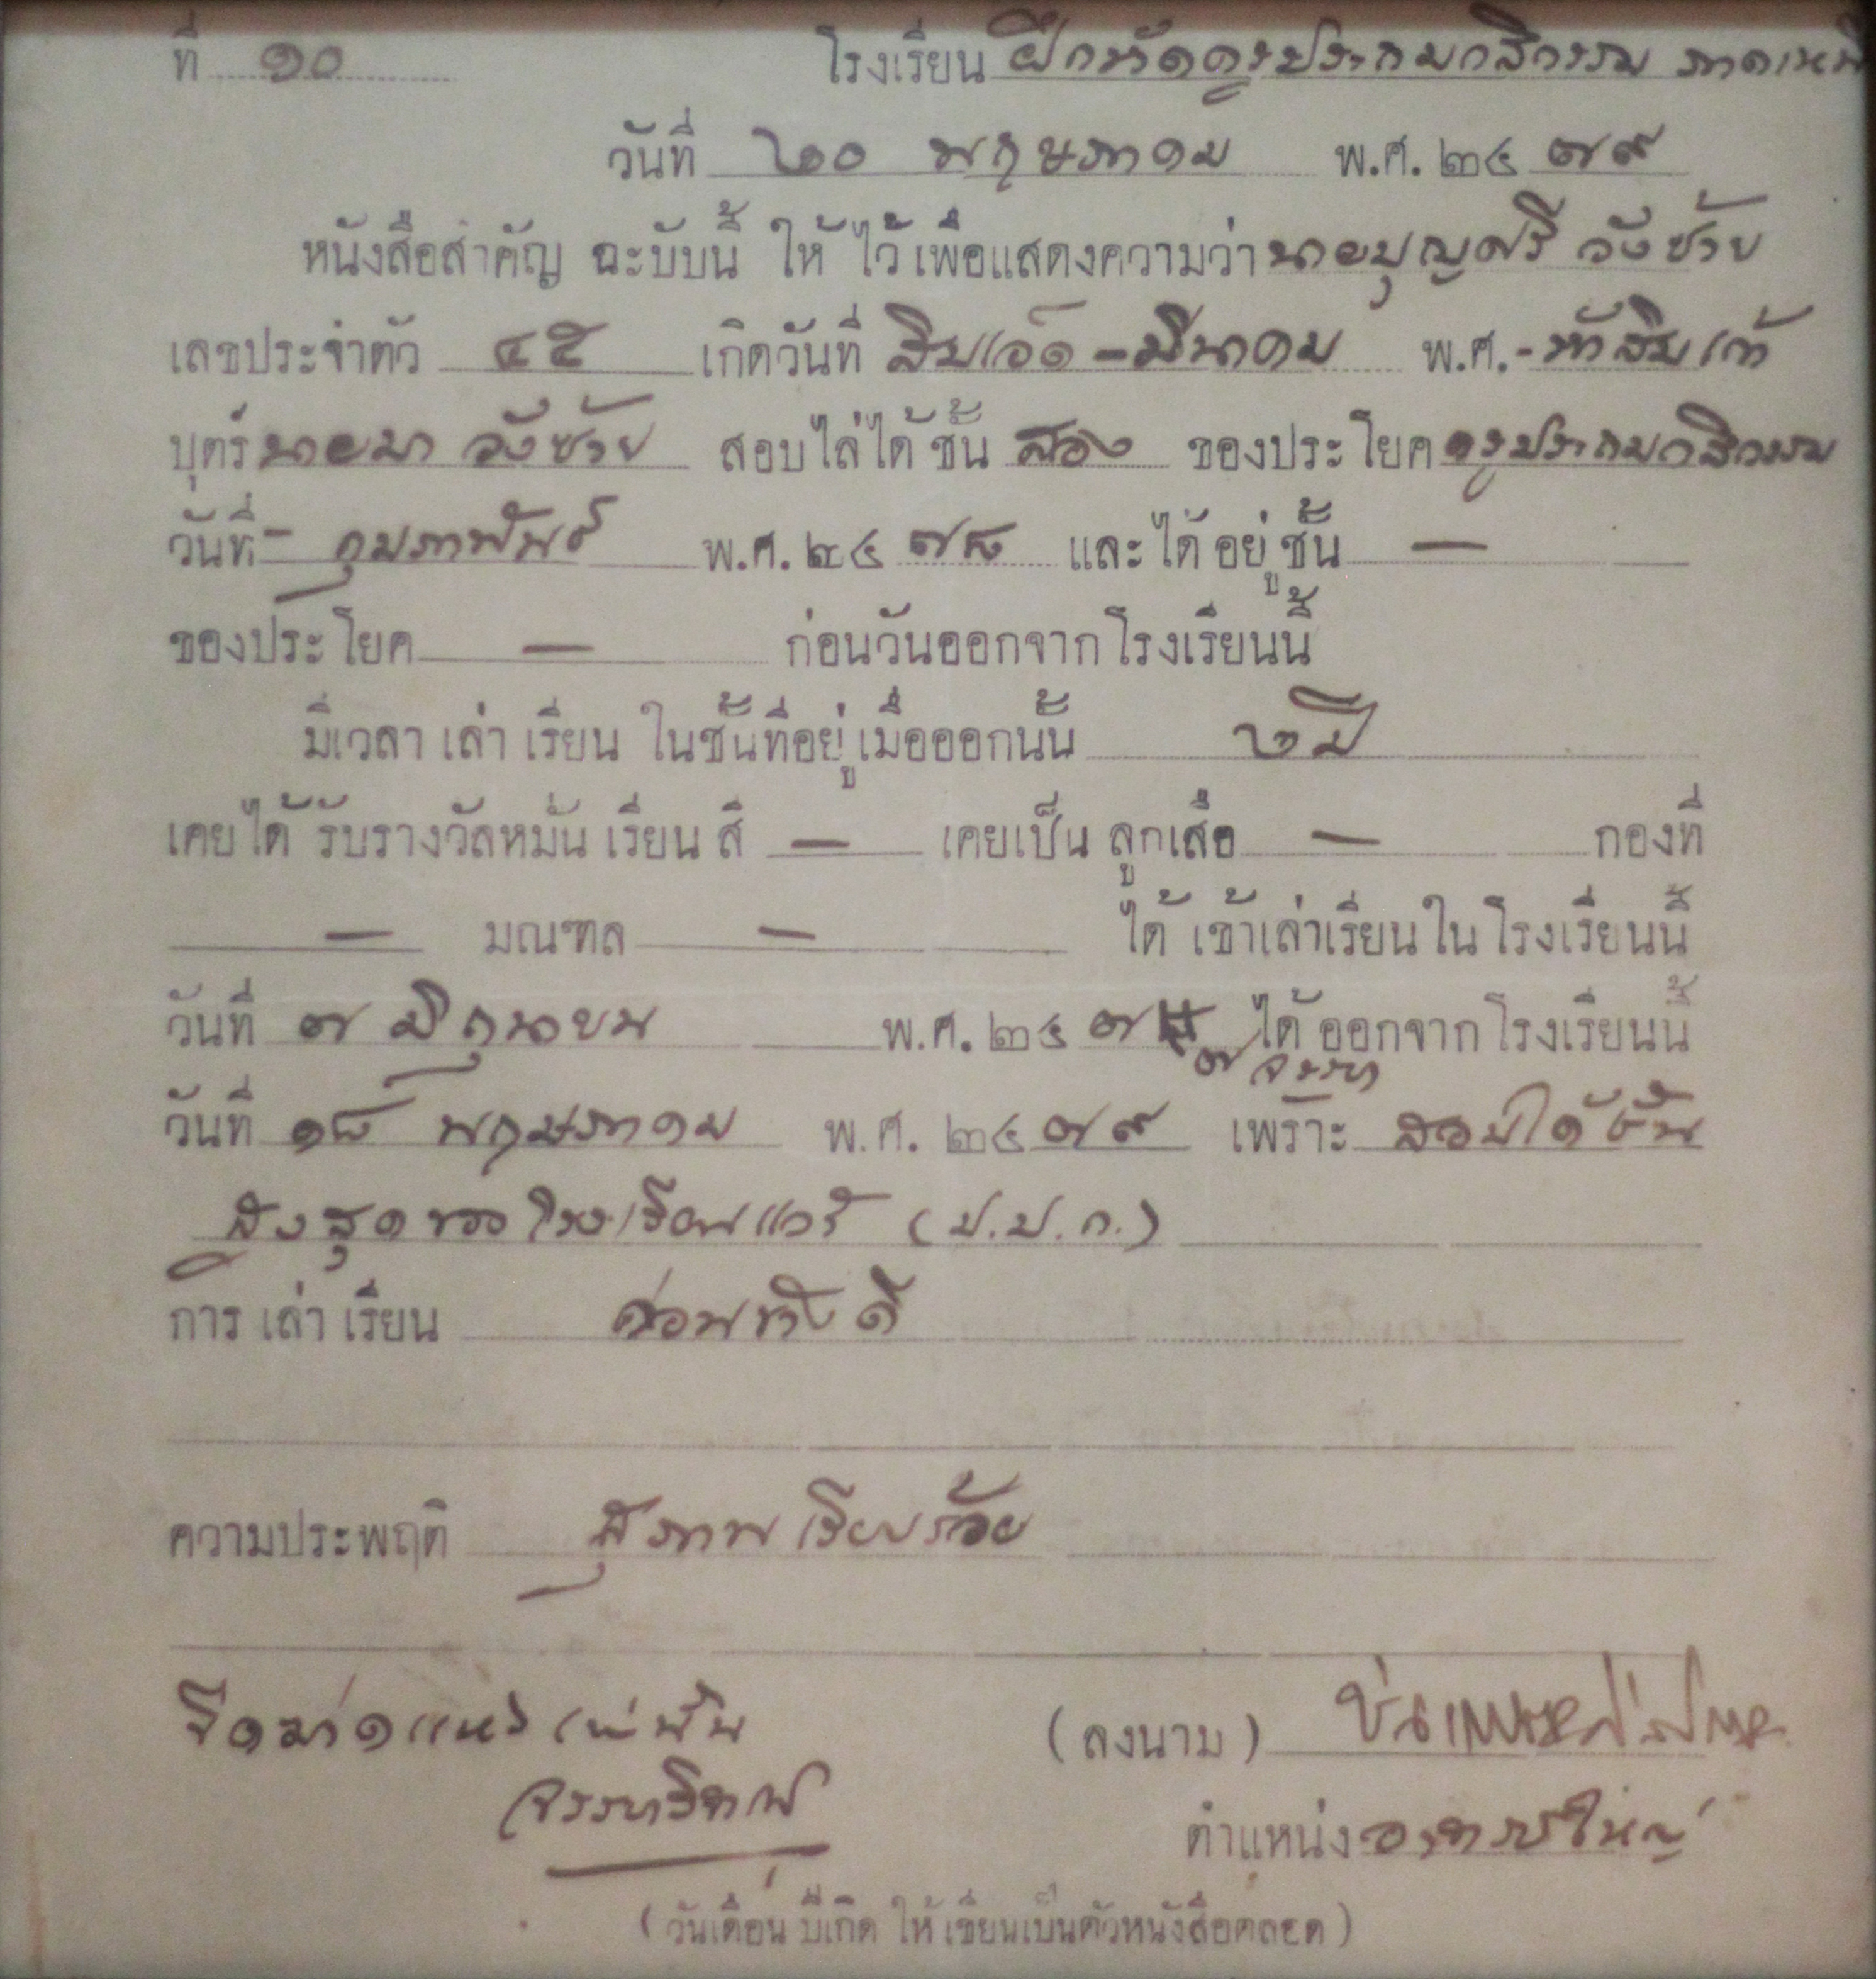 ที่ ๑๐ โรงเรียน ฝึกหัดครูประถมกสิกรรม ภาคเหนื
วันที่ ๒๐ พฤษภาคม พ.ศ. ๒๔๗๙
หนังสือสำคัญ ฉะบับนี้ ให้ ไว้ เพื่อแสดงความว่า นายบุญศรี วังซ้าย
เลขประจำตัว ๔๕ เกิดวันที่ สิบเอ็ด - มีนาคม พ.ศ. - ห้าสิบเก้า
บุตร์ นายมา วังซ้าย สอบไล่ได้ ชั้น สอง ของประโยค ครูประถมกสิกรรม
วันที่ - กุมภาพันธ์ พ.ศ. ๒๔๗๘ และได้ อยู่ ชั้น —
ของประโยค — ก่อนวันออกจากโรงเรียนนี้
มีเวลา เล่า เรียน ในชั้นที่อยู่ เมื่อออกนั้น ๒ ปี
เคยได้ รับรางวัลหมั่น เรียน สี — เคยเป็น ลูกเสือ — กองที่
— มณฑล — ได้ เข้าเล่าเรียน ใน โรงเรียนนี้
วันที่ ๗ มิถุนายน พ.ศ. ๒๔๗ ได้ ออกจากโรงเรียนนี้
๗ จรรยา
วันที่ ๑๘ พฤษภาคม พ.ศ. ๒๔๗๙ เพราะ สอบได้ชั้น
สูงสุดของโรงเรียนแล้ว (ป.ป.ก.)
การ เล่า เรียน ค่อนข้างดี
ความประพฤติ สุภาพ เรียบร้อย
ขีดฆ่าตำแหน่ง
(ลงนาม)
ตำแหน่ง อาจารย์ใหญ่
(วันเดือน ปีเกิด ให้ เขียนเป็นตัวหนังสือตลอด)